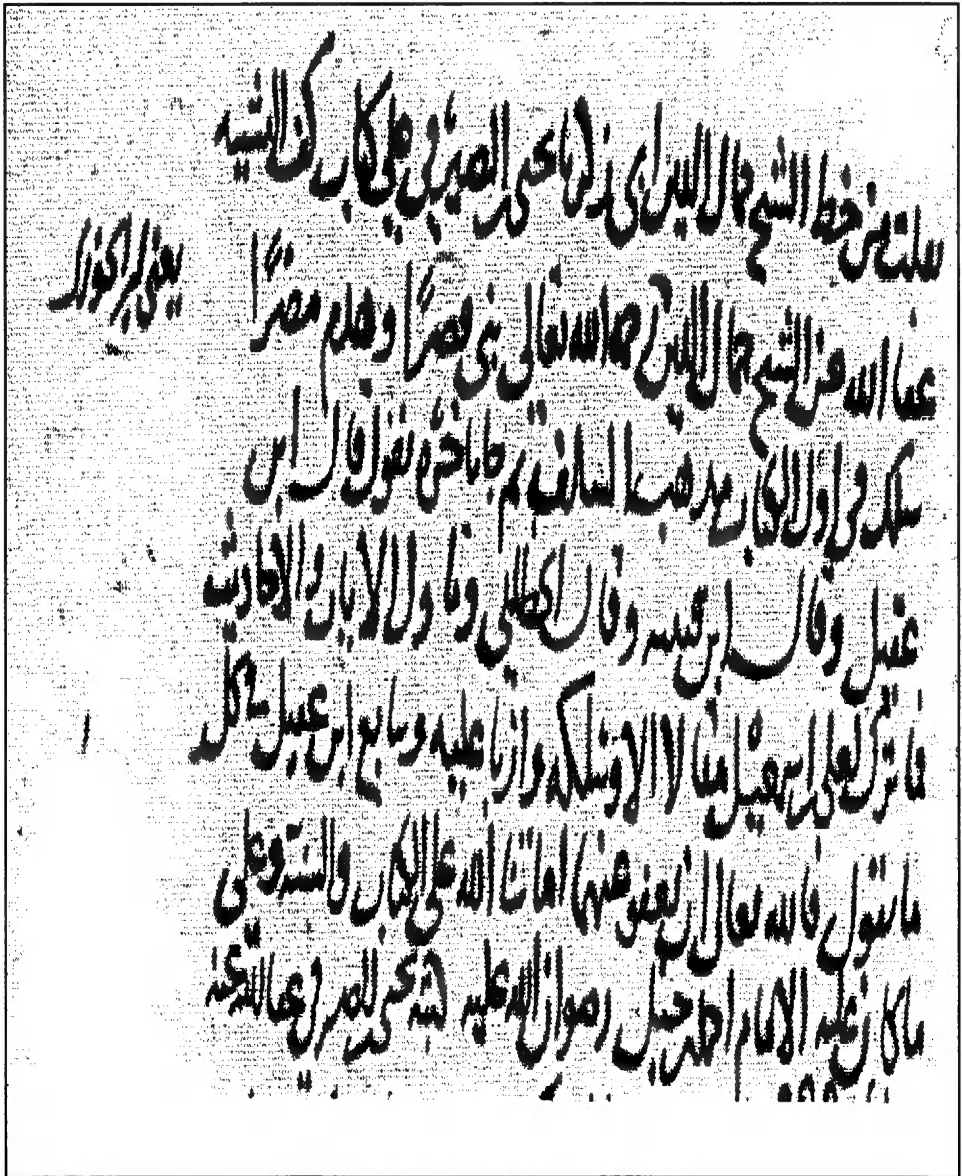 نقلت من خط الشيخ جمال الدين ابي زكريا يحيى الصيرفي على كتاب كف التشبيه
عفا الله عن الشيخ جمال الدين رحمه الله تعالى بنى قصرًا وهدم مصرًا
يعني ابن الجوزي
سلك في اول الكتاب مذهب السلف ثم جا باخره يقول قال ابن
عقيل وقال ابن قتيبه وقال الخطابي وتاول الايات والاحاديث
فما ترك لعلي ابن عقيل مقالا الا وسلكه وازرا عليه وتابع ابن عقيل في كل
ما يقول فالله تعالى يعفو عنهما اماتنا الله على الكتاب والسنة وعلى
ما كان عليه الامام احمد بن حنبل رضوان الله عليه كتبه يحيى بن الصيرفي عفا الله عنه